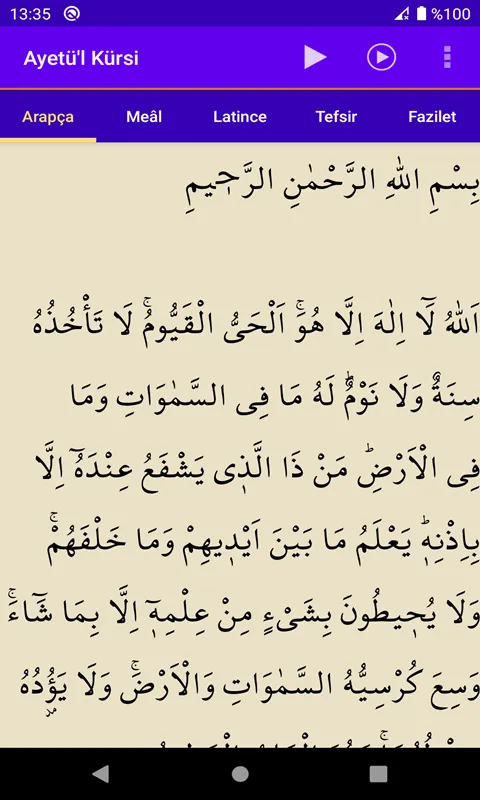 13:35
%100
Ayetü'l Kürsi
Arapça Meâl Latince Tefsir Fazilet
بِسْمِ اللّٰهِ الرَّحْمٰنِ الرَّح۪يمِ
اَللّٰهُ لَٓا اِلٰهَ اِلَّا هُوَۚ اَلْحَيُّ الْقَيُّومُۚ لَا تَأْخُذُهُ
سِنَةٌ وَلَا نَوْمٌۜ لَهُ مَا فِى السَّمٰوَاتِ وَمَا
فِى الْاَرْضِۜ مَنْ ذَا الَّذ۪ى يَشْفَعُ عِنْدَهُٓ اِلَّا
بِاِذْنِه۪ۜ يَعْلَمُ مَا بَيْنَ اَيْد۪يهِمْ وَمَا خَلْفَهُمْۚ
وَلَا يُح۪يطُونَ بِشَىْءٍ مِنْ عِلْمِه۪ٓ اِلَّا بِمَا شَٓاءَۚ
وَسِعَ كُرْسِيُّهُ السَّمٰوَاتِ وَالْاَرْضَۚ وَلَا يَؤُ۫دُهُ